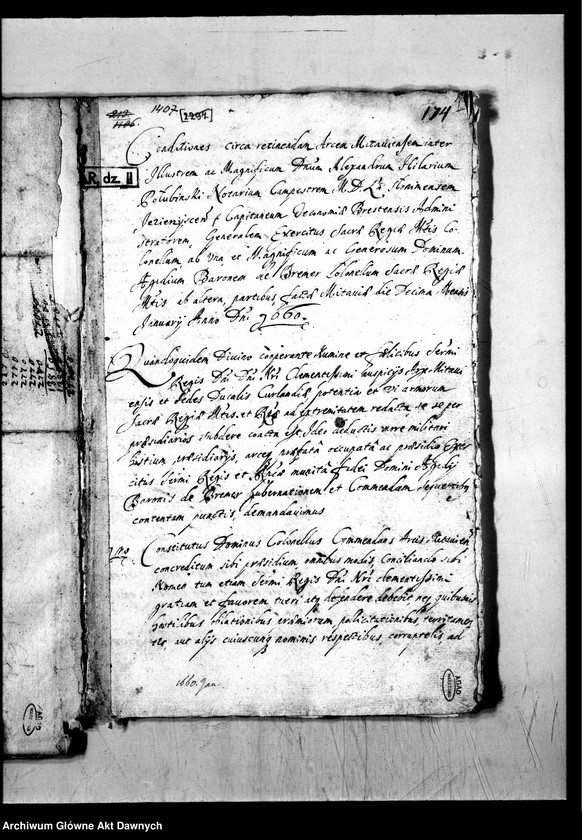 1407
174
R. dz. II
Conditiones circa retinendam Arcem Mitaviensem inter
Illustrem ac Magnificum Dnum Alexandrum Hilarium
Polubinski Notarium Campestrem M. D. L.
Capitaneum Oeconomiae Brestensis Admini
stratorem, Generalem Exercitus Sacrae Regiae Mtis Co-
lonellum ab una et Magnificum ac Generosum Dominum
Aegidium Baronem de Bremer Colonellum Sacrae Regiae
Mtis ab altera, partibus factae Mitaviae die Decima Mensis
January Anno Dni 1660.
Quandoquidem Divino cooperante Numine et felicibus Sermi
Regis Dni Dni Nri Clementissimi auspicijs Arx Mitavi
ensis et Sedes Ducalis Curlandiae potentia et vi armorum
Sacrae Regiae Mtis et ad extremitatem redacta se se per
praesidiarios subdere coacta est. Ideo deductis more militari
hostium praesidiarijs, arcem praefatam occupatam ac praesidio Exer
citus Sermi Regis et munitam fidei Domini Aegidij
Baronis de Bremer gubernationem et Commendam sequentibus
contentam punctis, demandavimus
1mo
Constitutus Dominus Colonellus Commendans Arcis Mitavien
concreditum sibi praesidium omnibus modis, Conciliando sibi
Nomen tum etiam Sermi Regis Dni Nri clementissimi
gratiam et favorem tueri atque defendere debebit neque quibusvis
hostilibus oblationibus praemiorum, pollicitationibus, territamen
tis, aut alijs cuiuscunque nominis respectibus, corruptelis ad
1660. Jan.
AGAD
Archiwum Główne Akt Dawnych